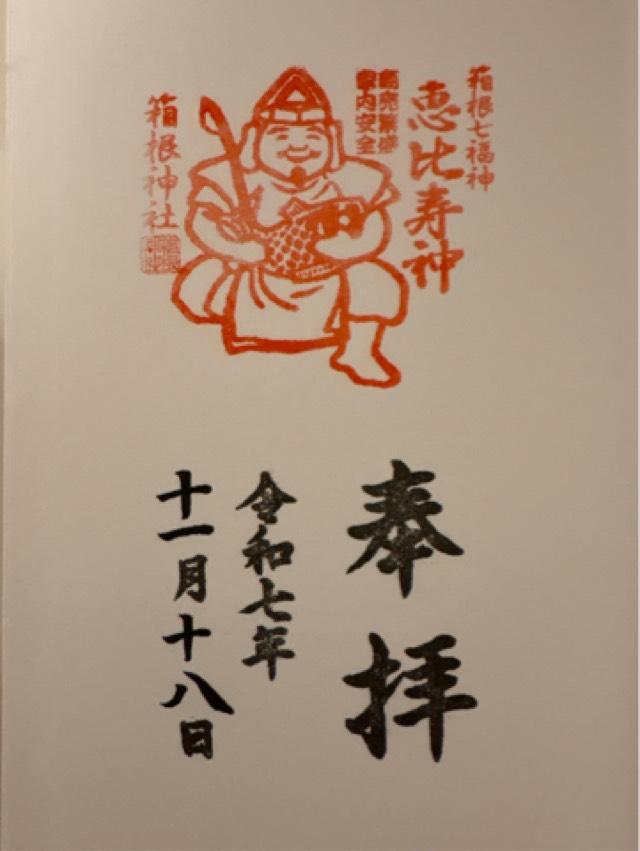 箱根七福神
恵比寿神
商売繁盛
家内安全
箱根神社
奉拝
令和七年
十一月十八日